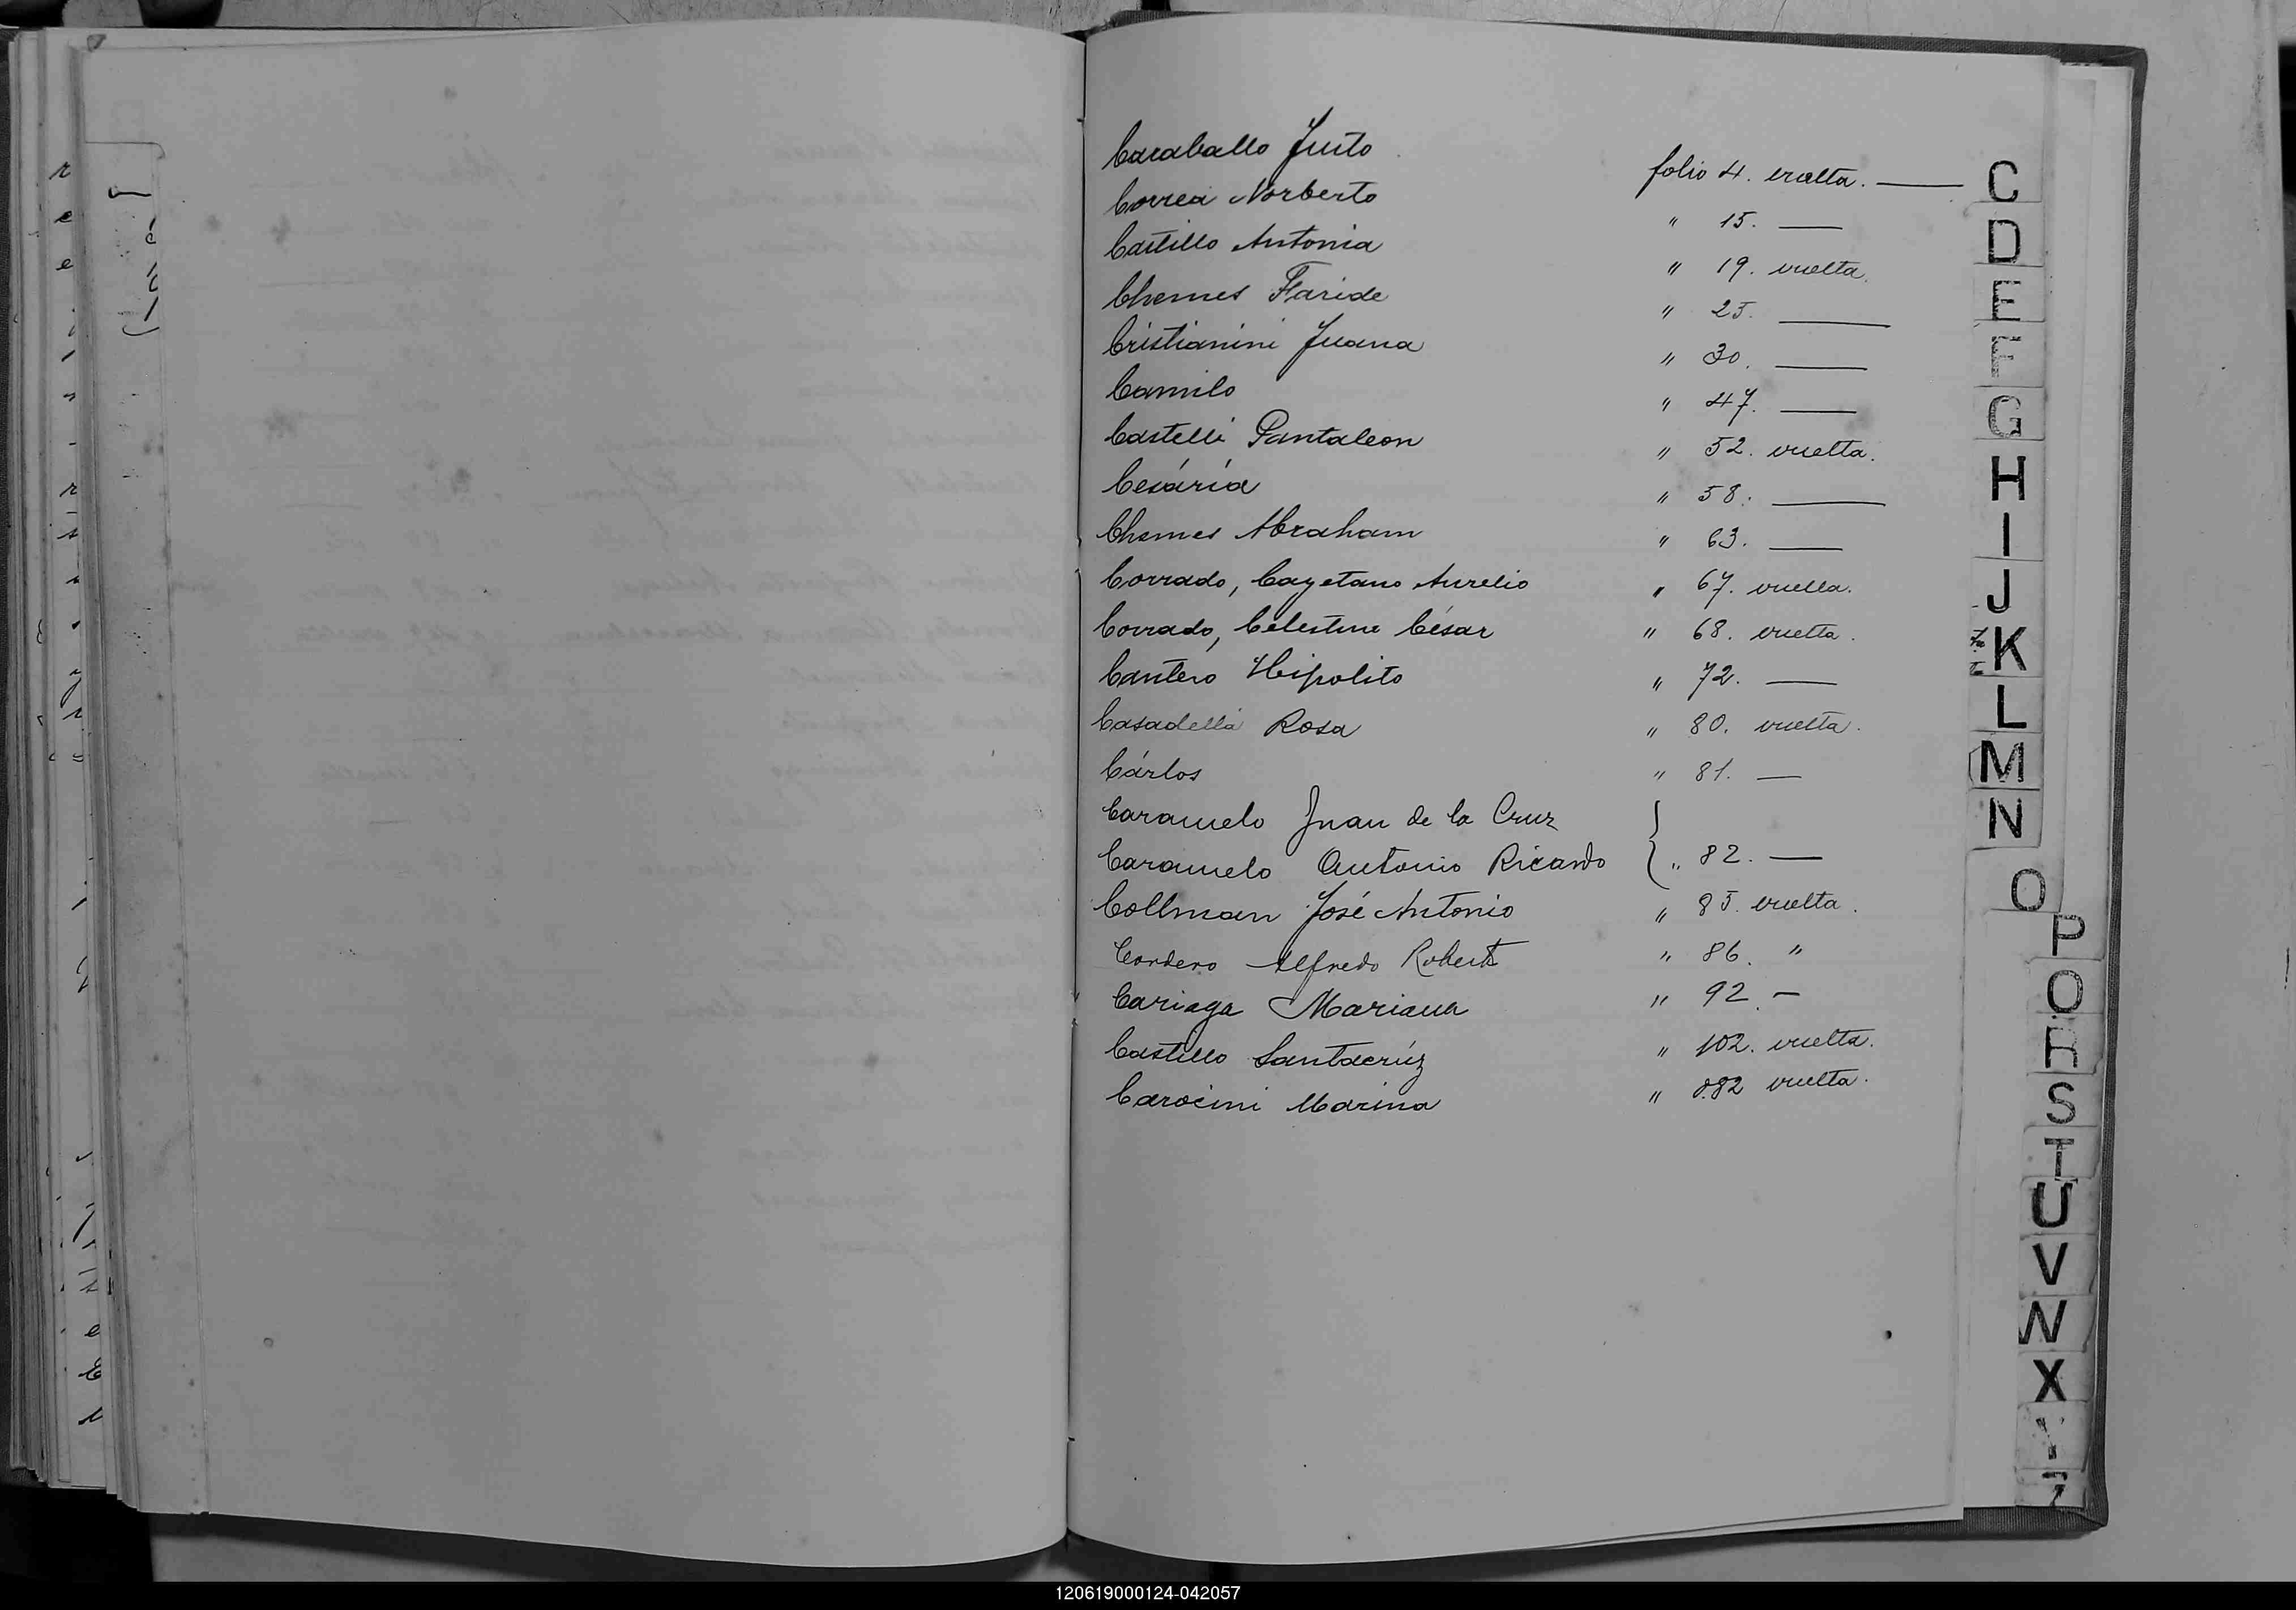 Caraballo Justo folio 4. vuelta. —
Correa Norberto " 15. —
Castillo Antonia " 19. vuelta.
Chemes Faride " 25. —
Cristianini Juana " 30. —
Camilo " 47. —
Castelli Pantaleon " 52. vuelta.
Cesária " 58. —
Chemes Abraham " 63. —
Corrado, Cayetano Aurelio " 67. vuelta.
Corrado, Celestino César " 68. vuelta.
Cantero Hipolito " 72. —
Casadella Rosa " 80. vuelta.
Cárlos " 81. —
Caramelo Juan de la Cruz
Caramelo Antonio Ricardo } " 82. —
Collman José Antonio " 85. vuelta.
Cordero Alfredo Robert " 86. "
Cariaga Mariana " 92 —
Castillo Santacrúz " 102. vuelta.
Carocini Marina " 82 vuelta.
C
D
E
F
G
H
I
J
K
L
M
N
O
P
Q
R
S
T
U
V
W
X
120619000124-042057